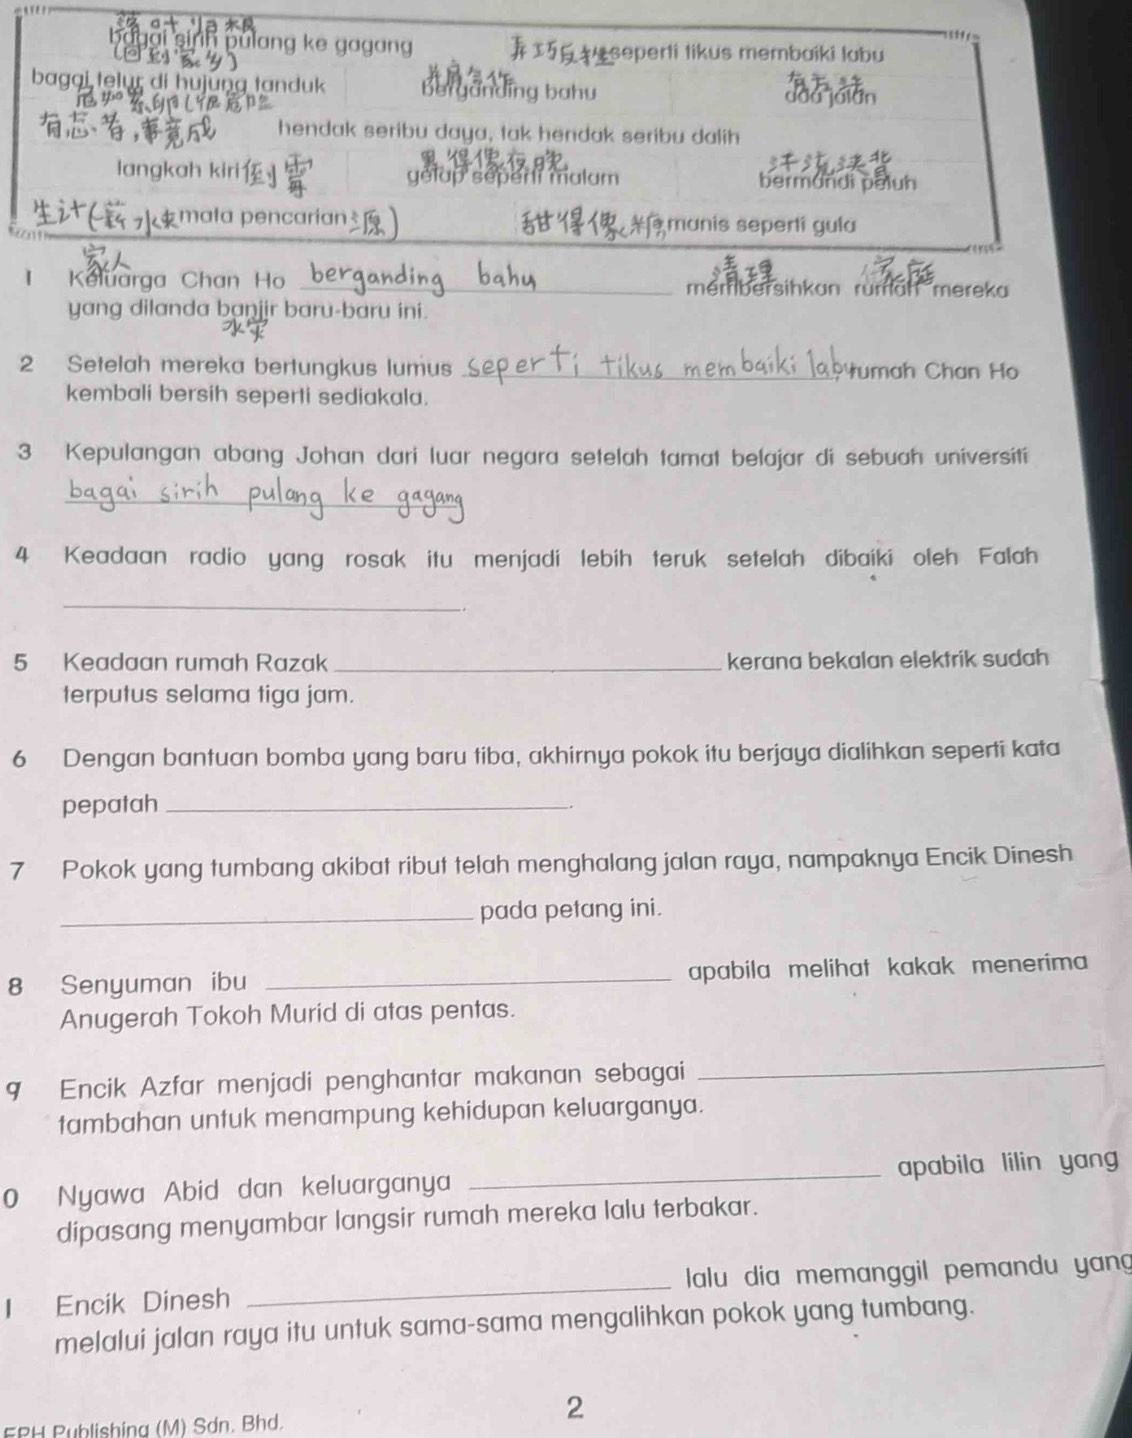 落叶归根
bagai sirih pulang ke gagang
(回到家乡)
弄巧反拙 seperti tikus membaiki labu
bagai telur di hujung tanduk
危如累卵(很危险
并肩合作
berganding bahu
有天, 这
ada jalan
有志者,事竟成 hendak seribu daya, tak hendak seribu dalih
langkah kiri 倒霉
黑得像夜晚
gelap seperti malam
汗流浃背
bermandi peluh
生计(薪水来 mata pencarian 源)
甜得像糖 manis seperti gula
家人 清理 家庭
1 Keluarga Chan Ho berganding bahu membersihkan rumah mereka
yang dilanda banjir baru-baru ini.
水灾
2 Setelah mereka bertungkus lumus seperti tikus membaiki labu rumah Chan Ho
kembali bersih seperti sediakala.
3 Kepulangan abang Johan dari luar negara setelah tamat belajar di sebuah universiti
bagai sirih pulang ke gagang
4 Keadaan radio yang rosak itu menjadi lebih teruk setelah dibaiki oleh Falah
.
5 Keadaan rumah Razak kerana bekalan elektrik sudah
terputus selama tiga jam.
6 Dengan bantuan bomba yang baru tiba, akhirnya pokok itu berjaya dialihkan seperti kata
pepatah .
7 Pokok yang tumbang akibat ribut telah menghalang jalan raya, nampaknya Encik Dinesh
pada petang ini.
8 Senyuman ibu apabila melihat kakak menerima
Anugerah Tokoh Murid di atas pentas.
9 Encik Azfar menjadi penghantar makanan sebagai
tambahan untuk menampung kehidupan keluarganya.
0 Nyawa Abid dan keluarganya apabila lilin yang
dipasang menyambar langsir rumah mereka lalu terbakar.
1 Encik Dinesh lalu dia memanggil pemandu yang
melalui jalan raya itu untuk sama-sama mengalihkan pokok yang tumbang.
2
EPH Publishing (M) Sdn. Bhd.